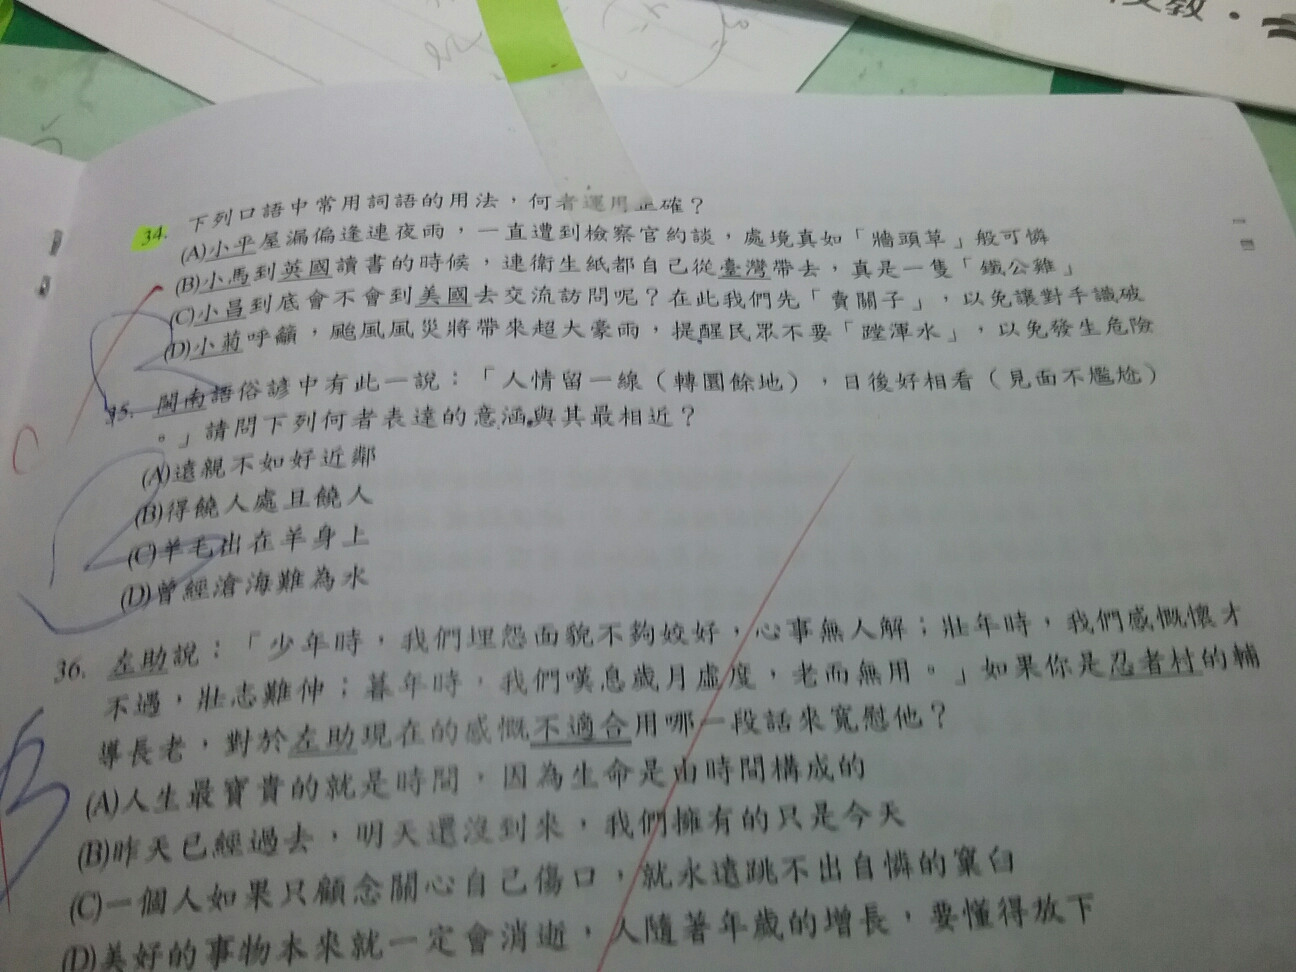 34. 下列口語中常用詞語的用法，何者運用正確？
(A)小平屋漏偏逢連夜雨，一直遭到檢察官約談，處境真如「牆頭草」般可憐
(B)小馬到英國讀書的時候，連衛生紙都自己從臺灣帶去，真是一隻「鐵公雞」
(C)小昌到底會不會到美國去交流訪問呢？在此我們先「賣關子」，以免讓對手識破
(D)小菊呼籲，颱風風災將帶來超大豪雨，提醒民眾不要「蹚渾水」，以免發生危險
35. 閩南語俗諺中有此一說：「人情留一線（轉圜餘地），日後好相看（見面不尷尬）
。」請問下列何者表達的意涵與其最相近？
(A)遠親不如好近鄰
(B)得饒人處且饒人
(C)羊毛出在羊身上
(D)曾經滄海難為水
36. 左助說：「少年時，我們埋怨面貌不夠姣好，心事無人解；壯年時，我們感慨懷才
不遇，壯志難伸；暮年時，我們嘆息歲月虛度，老而無用。」如果你是忍者村的輔
導長老，對於左助現在的感慨不適合用哪一段話來寬慰他？
(A)人生最寶貴的就是時間，因為生命是由時間構成的
(B)昨天已經過去，明天還沒到來，我們擁有的只是今天
(C)一個人如果只顧念關心自己傷口，就永遠跳不出自憐的窠臼
(D)美好的事物本來就一定會消逝，人隨著年歲的增長，要懂得放下